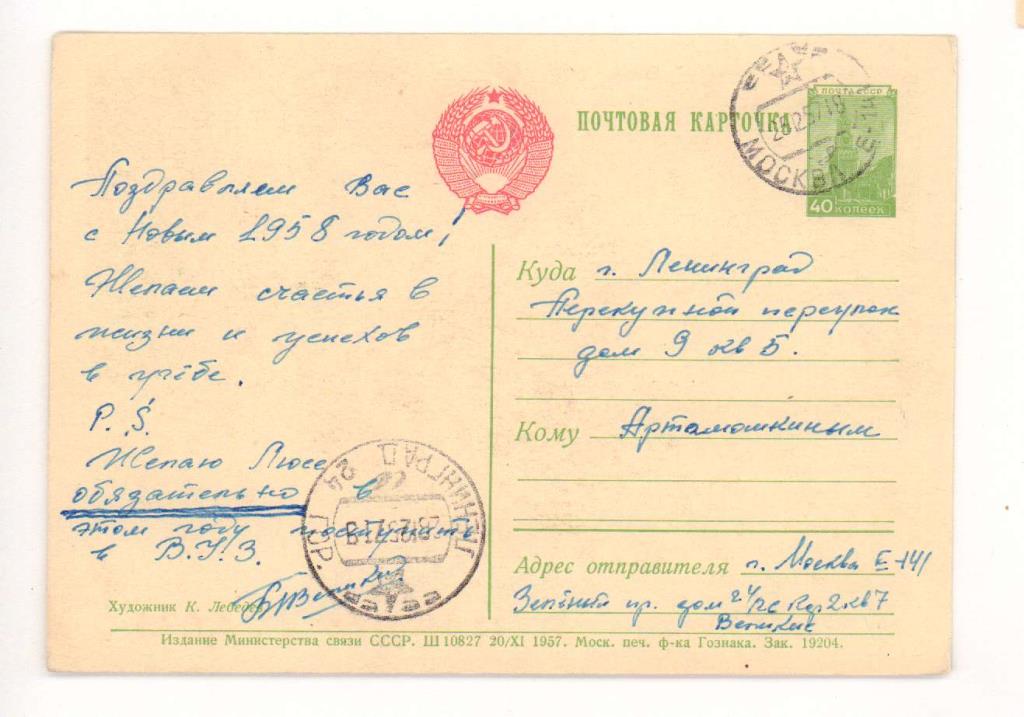 ПОЧТОВАЯ КАРТОЧКА
ПОЧТА СССР
40 КОПЕЕК
МОСКВА Е-141
Поздравляем Вас
с Новым 1958 годом!
Желаем счастья в
жизни и успехов
в учёбе.
P.S.
Желаю Люсе
обязательно в
этом году поступить
в В.У.З.
Великие
Куда г. Ленинград
Перекупной переулок
дом 9 кв 5.
Кому Артамошкиным
ЛЕНИНГРАД 24
ГОР.
Адрес отправителя г. Москва Е-141
Зелёный пр. дом кв 7
Великие
Художник К. Лебедев
Издание Министерства связи СССР. Ш 10827 20/XI 1957. Моск. печ. ф-ка Гознака. Зак. 19204.